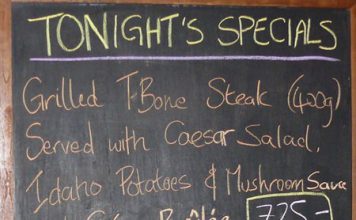 TONIGHT'S SPECIALS
Grilled T-Bone Steak (400g)
Served with Caesar Salad,
Idaho Potatoes & Mushroom Sauce
725-